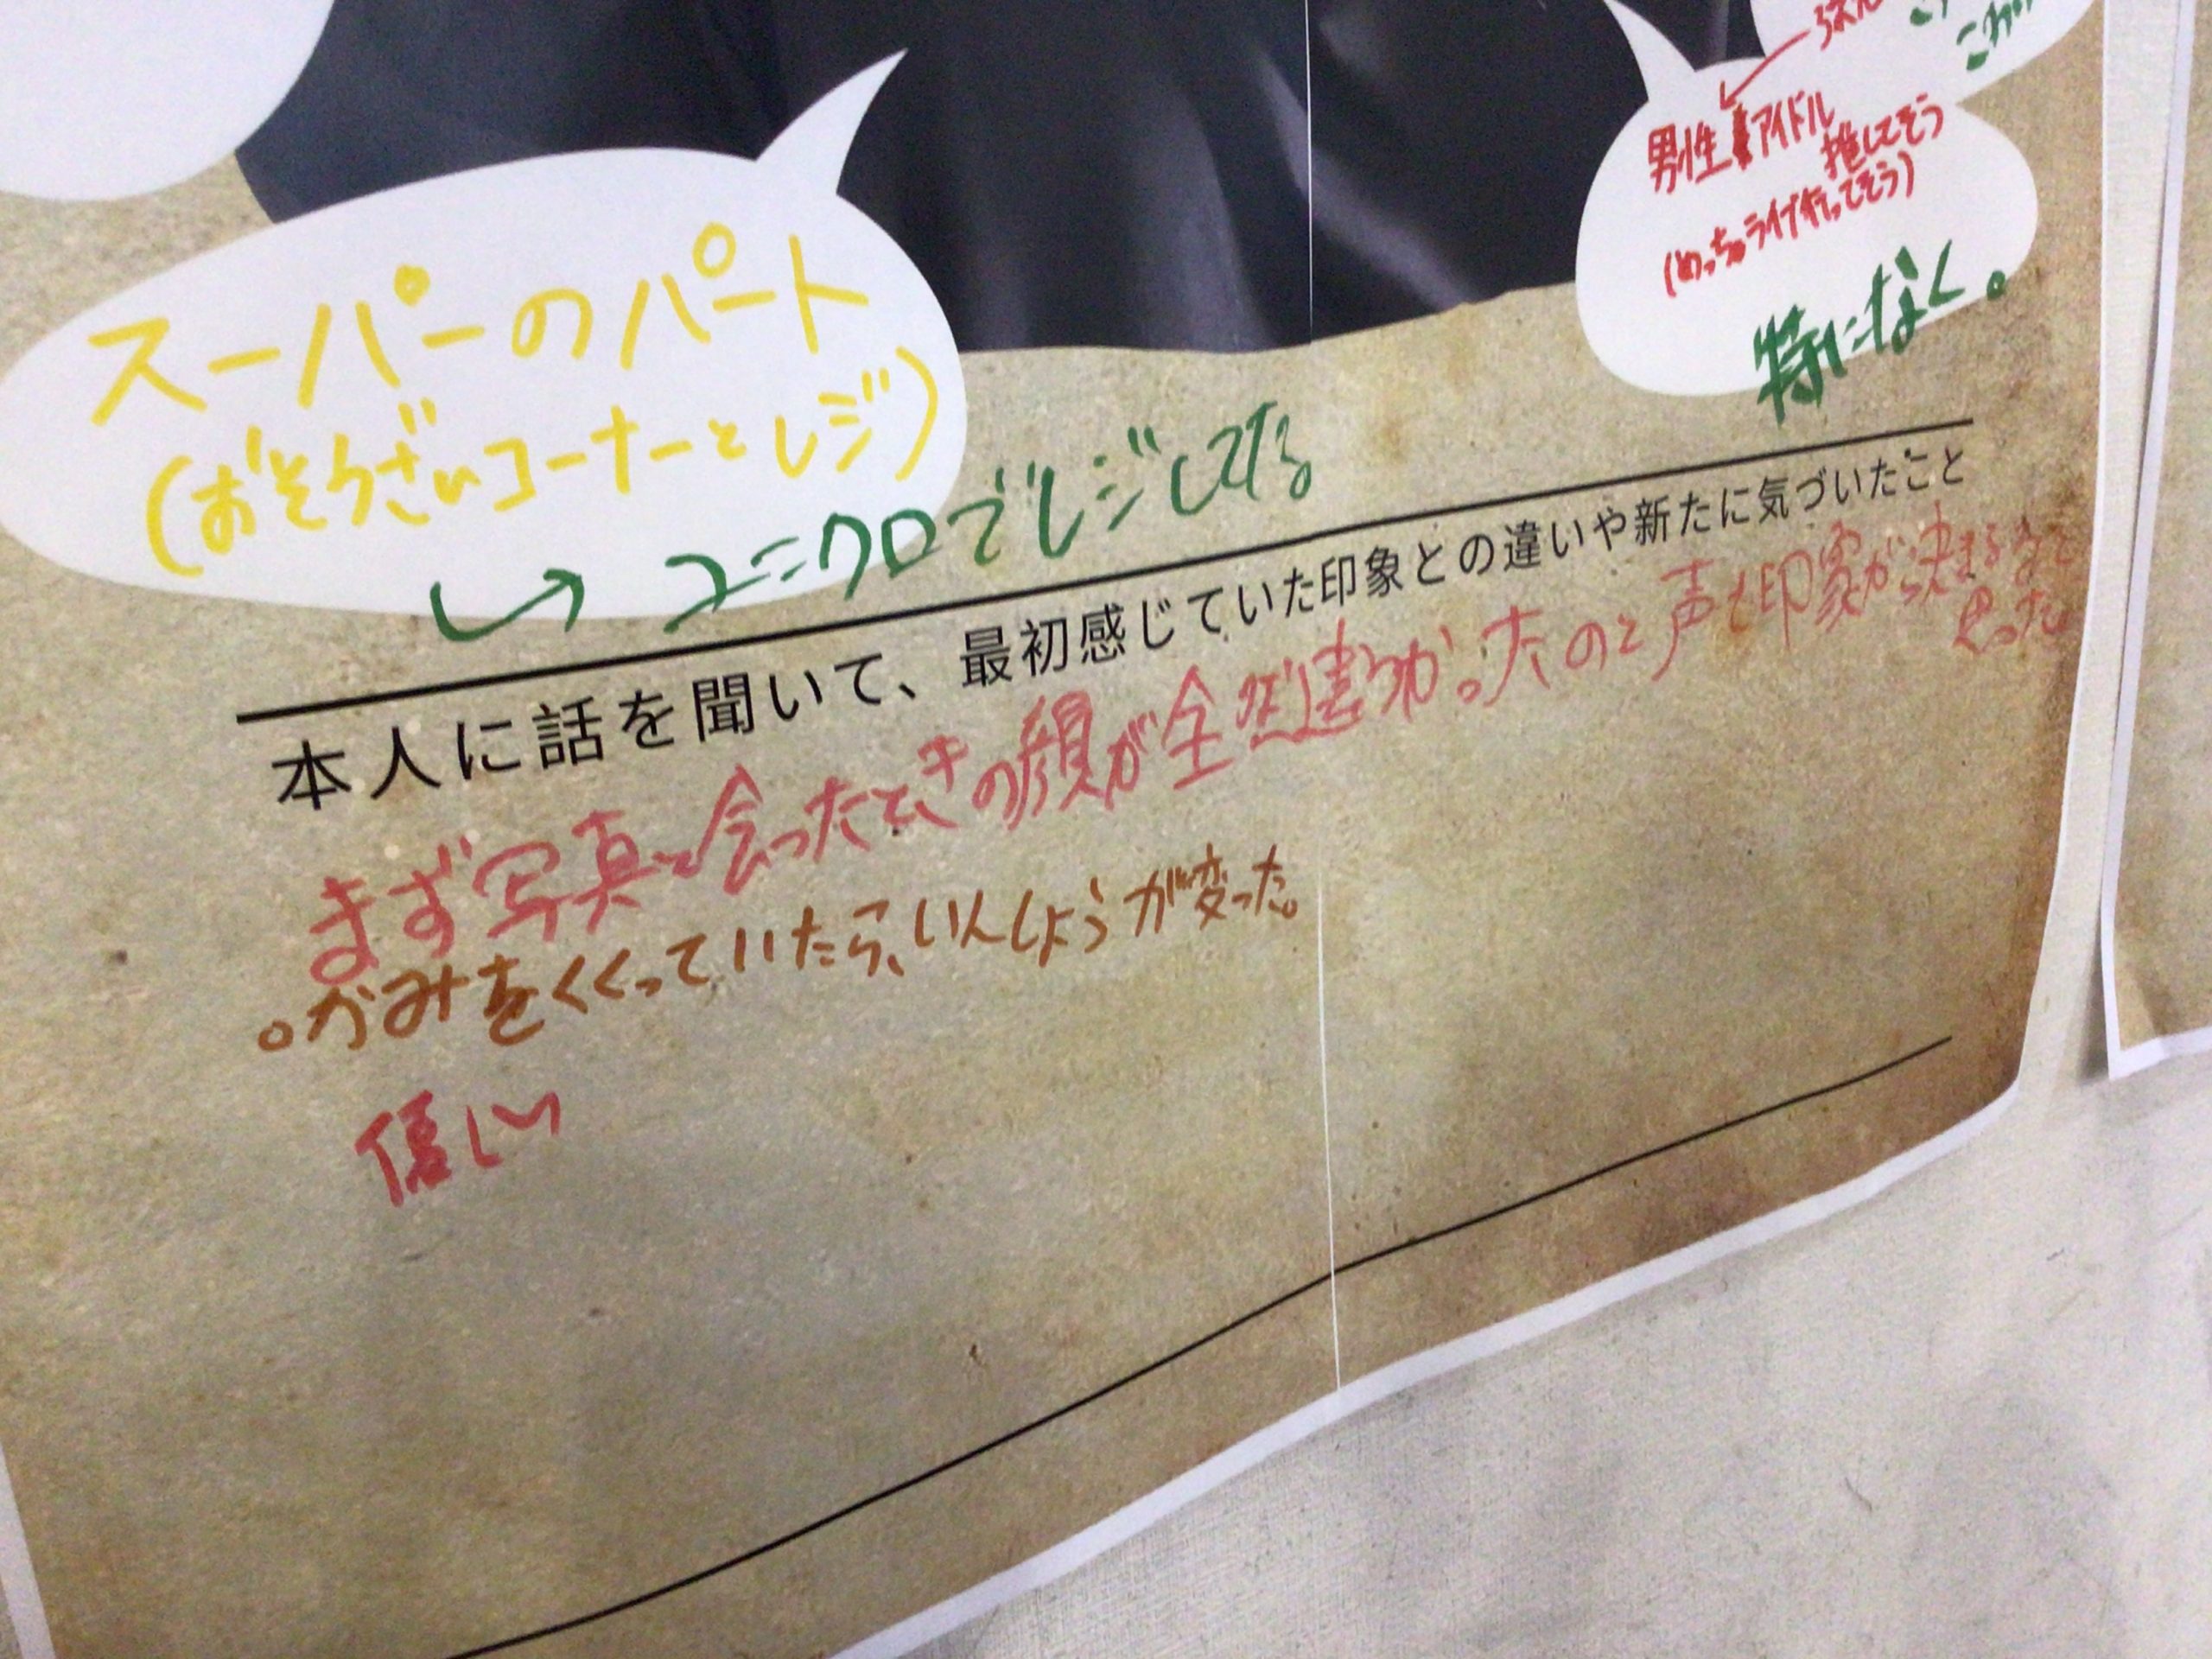 男性アイドル
推してそう
(めっちゃライブ行ってそう)
特になく。
スーパーのパート
(おそうざいコーナーとレジ)
→ ユニクロでレジしてる
本人に話を聞いて、最初感じていた印象との違いや新たに気づいたこと
まず写真と会ったときの顔が全然違うかったのと声で印象が決まるなと
思った
。かみをくくっていたら、いんしょうが変った。
優しい